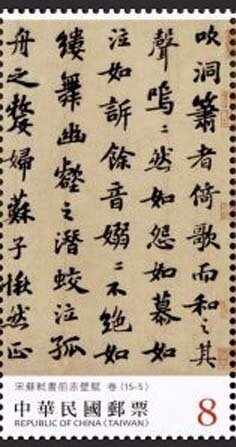 吹洞簫者倚歌而和之其
聲嗚〻然如怨如慕如
泣如訴餘音嫋〻不絕如
縷舞幽壑之潛蛟泣孤
舟之嫠婦蘇子愀然正
宋蘇軾書前赤壁賦 卷 (15-5)
中華民國郵票
REPUBLIC OF CHINA (TAIWAN)
8